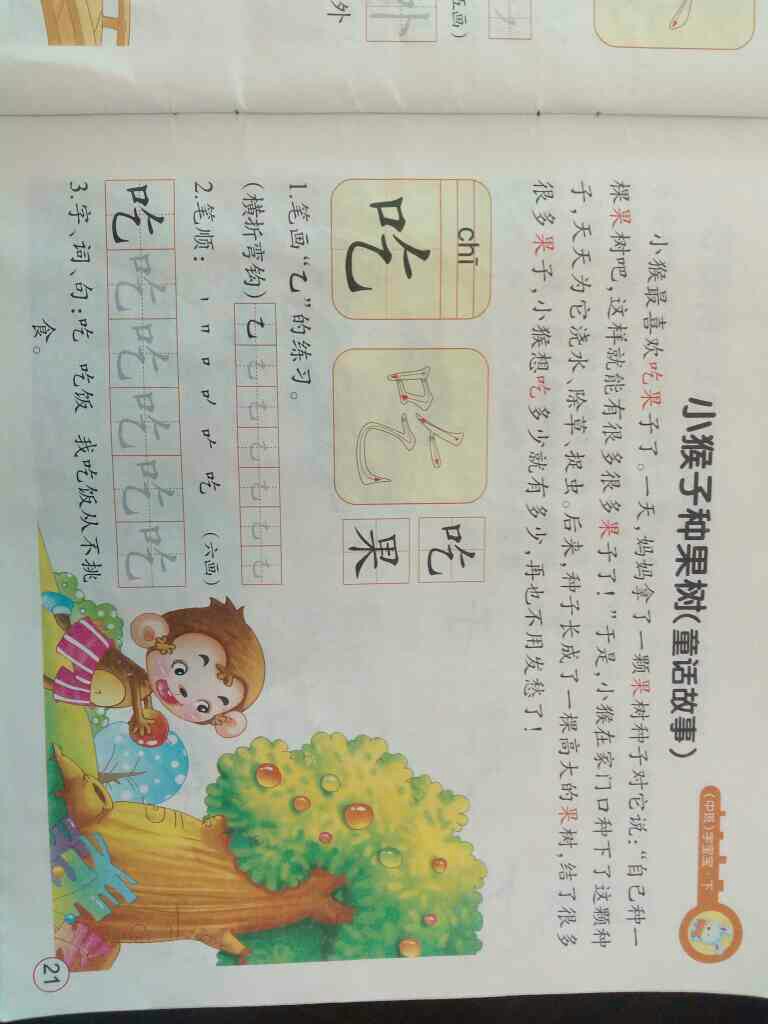 五画)
外
外
(中班)字宝宝·下
小猴子种果树(童话故事)
小猴最喜欢吃果子了。一天,妈妈拿了一颗果树种子对它说:“自己种一
棵果树吧,这样就能有很多很多果子了!”于是,小猴在家门口种下了这颗种
子,天天为它浇水、除草、捉虫。后来,种子长成了一棵高大的果树,结了很多
很多果子,小猴想吃多少就有多少,再也不用发愁了!
chī
吃 吃 吃
果
1.笔画“乙”的练习。
(横折弯钩) 乙 乙 乙 乙 乙 乙 乙
2.笔顺: 丨 𠃍 口 吃 (六画)
吃 吃 吃 吃 吃 吃
3.字、词、句:吃 吃饭 我吃饭从不挑
食。
21